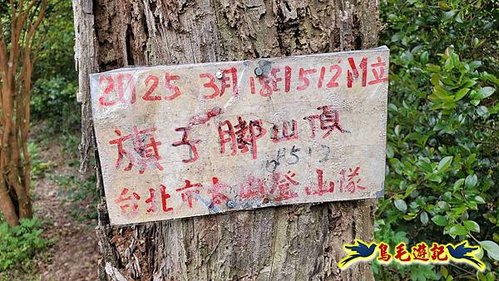 2025 3月18日1512M立
旗子腳山頂
台北市 山登山隊
鳥毛遊記